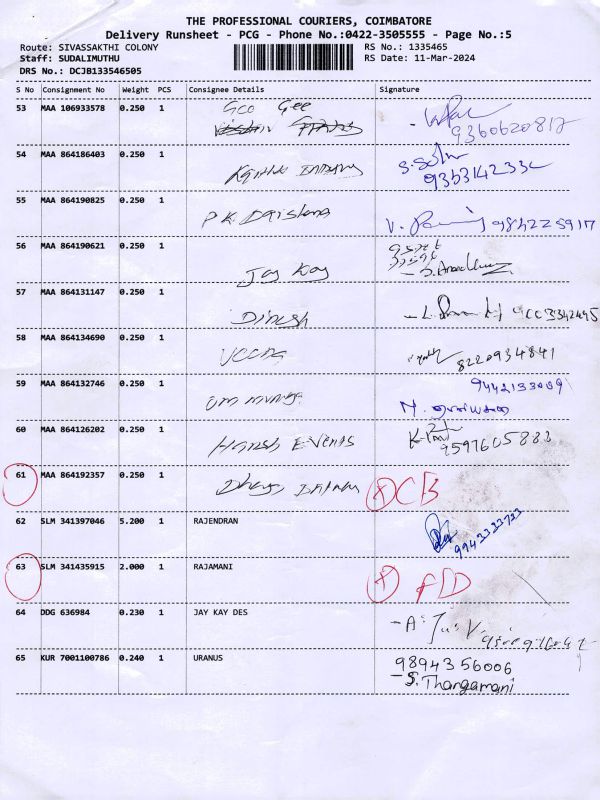 THE PROFESSIONAL COURIERS, COIMBATORE
Delivery Runsheet - PCG - Phone No.:0422-3505555 - Page No.:5
Route: SIVASSAKTHI COLONY
RS No.: 1335465
Staff: SUDALIMUTHU
RS Date: 11-Mar-2024
DRS No.: DCJB133546505
S No Consignment No Weight PCS Consignee Details Signature
53 MAA 106933578 0.250 1 Geo Gee
9360620817
54 MAA 864186403 0.250 1
9363142332
55 MAA 864190825 0.250 1 P.K.
V. 9842225917
56 MAA 864190621 0.250 1 Jay Kay
57 MAA 864131147 0.250 1 Dinesh
58 MAA 864134690 0.250 1
8220934841
59 MAA 864132746 0.250 1 om
9442133009
60 MAA 864126202 0.250 1 Harish Events
9597605883
61 MAA 864192357 0.250 1 CB
62 SLM 341397046 5.200 1 RAJENDRAN
9943333723
63 SLM 341435915 2.000 1 RAJAMANI
64 DDG 636984 0.230 1 JAY KAY DES
65 KUR 7001100786 0.240 1 URANUS 9894356006
- S. Thangamani